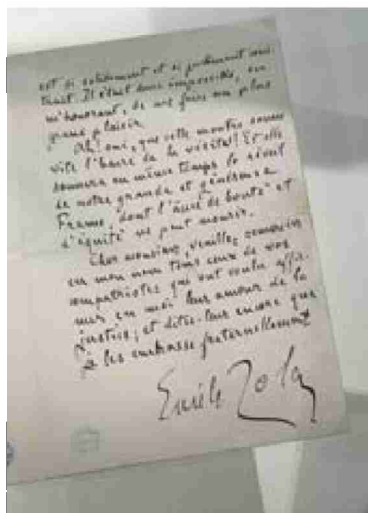 est si solidement et si joliment cons-
truit. Il était donc impossible, en
m'honorant, de me faire un plus
grand plaisir.
Ah! oui, que cette montre sonne
vite l'heure de la vérité! Et elle
sonnera en même temps le réveil
de notre grande et généreuse
France, dont l'âme de bonté et
d'équité ne peut mourir.
Cher monsieur, veuillez remercier
en mon nom tous ceux de vos
compatriotes qui ont voulu affir-
mer en moi leur amour de la
justice; et dites-leur encore que
je les embrasse fraternellement
Emile Zola